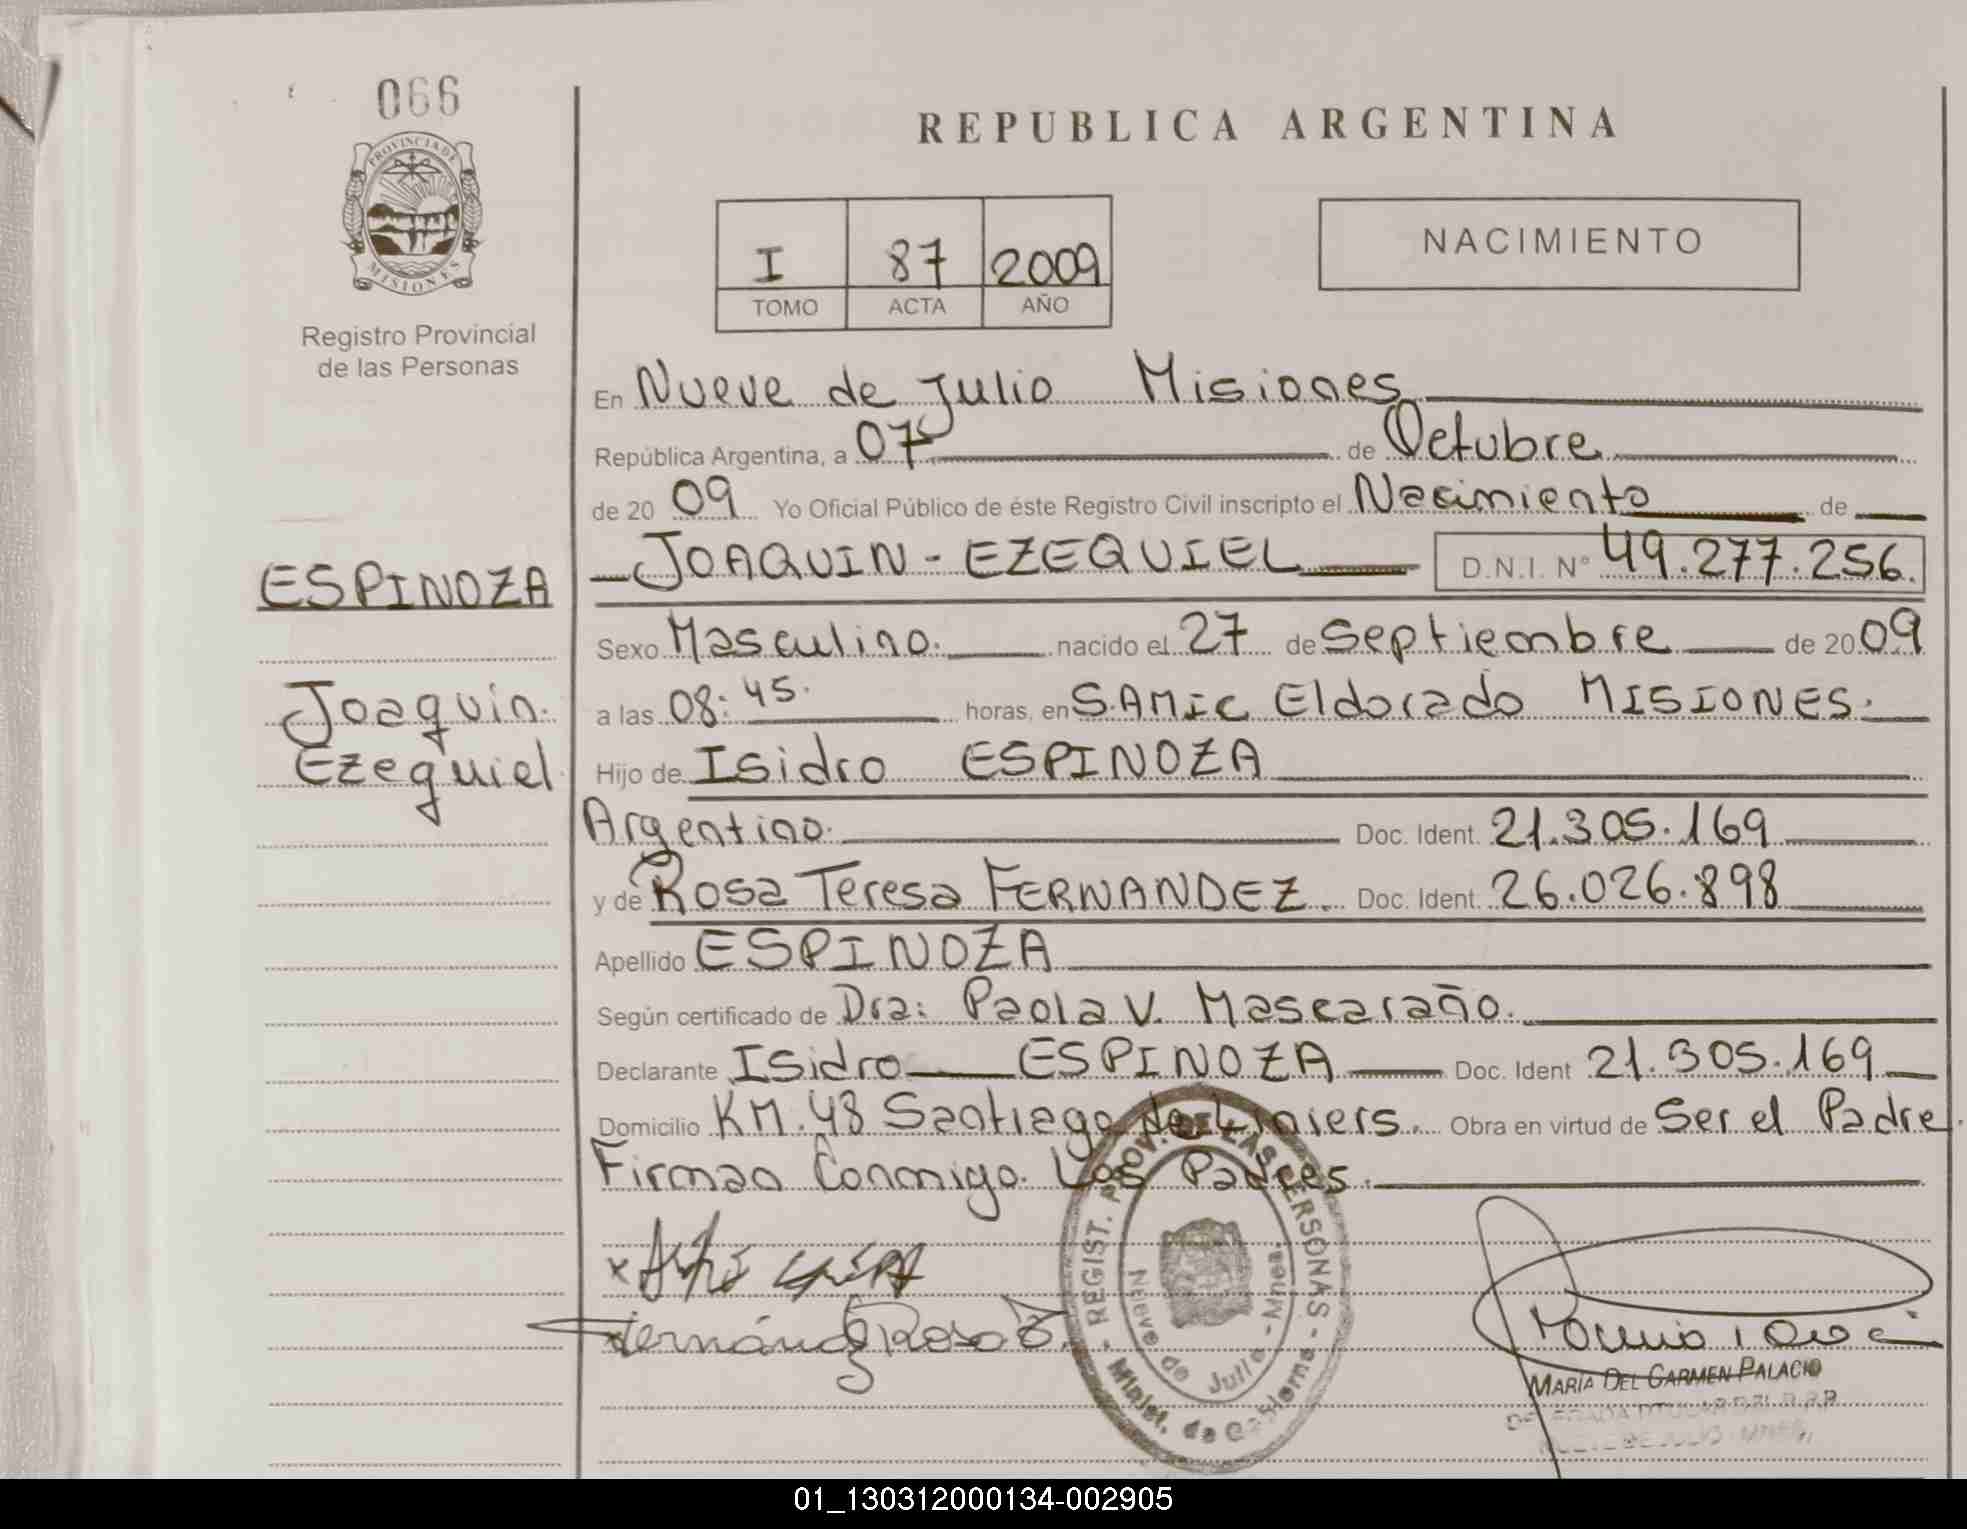 066
PROVINCIA DE
MISIONES
Registro Provincial
de las Personas
REPUBLICA ARGENTINA
I 87 2009
TOMO ACTA AÑO
NACIMIENTO
En Nueve de Julio Misiones
República Argentina, a 07 de Octubre
de 20 09 Yo Oficial Público de éste Registro Civil inscripto el Nacimiento de
ESPINOZA
JOAQUIN - EZEQUIEL D.N.I. N° 49.277.256.
Sexo Masculino. nacido el 27 de Septiembre de 20 09
Joaquin.
a las 08:45. horas, en S.AMic Eldorado MISIONES.
Ezequiel.
Hijo de Isidro ESPINOZA
Argentino. Doc. Ident. 21.305.169
y de Rosa Teresa FERNANDEZ. Doc. Ident. 26.026.898
Apellido ESPINOZA
Según certificado de Dra: Paola V. Mascaraño.
Declarante Isidro ESPINOZA Doc. Ident 21.305.169
Domicilio KM.48 Santiago de Liniers. Obra en virtud de Ser el Padre.
Firman Conmigo. Los Padres.
- REGIST. PROV. DE LAS PERSONAS -
Minist. de Gobierno
Nueve de Julio - Mnes.
Fernández Rosa T.
MARÍA DEL CARMEN PALACIO
01_130312000134-002905